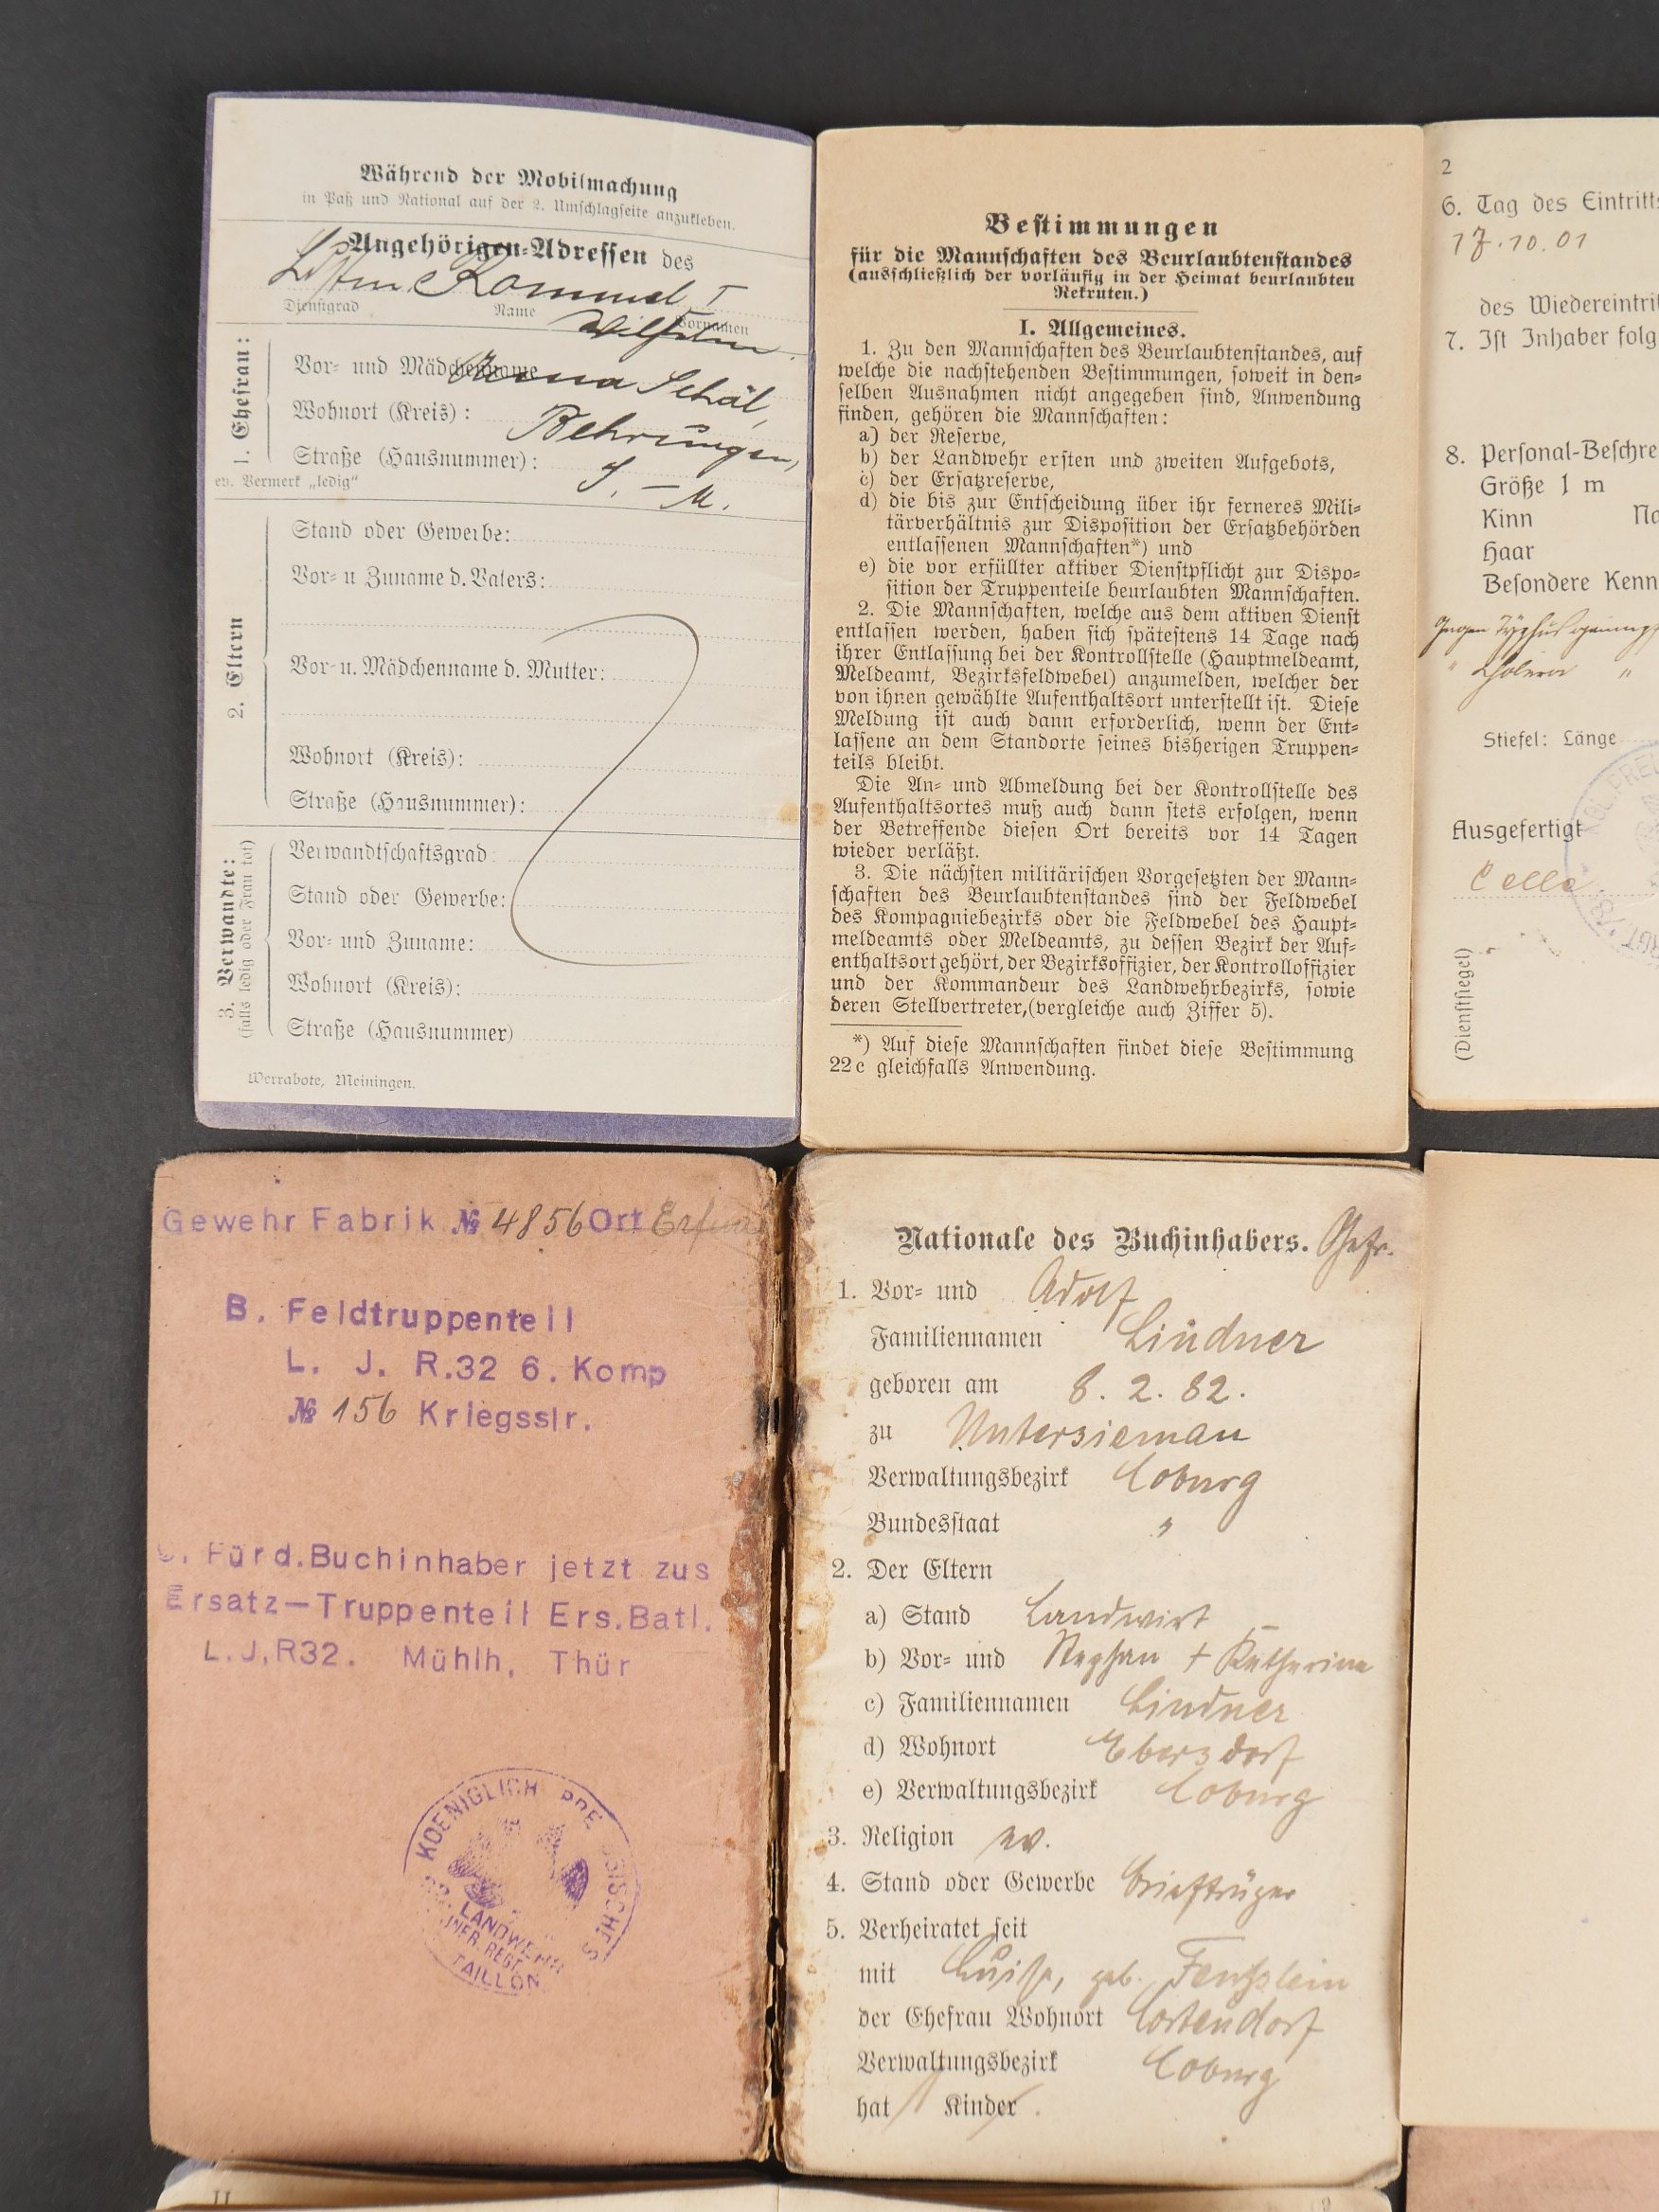 Während der Mobilmachung
in Paß und National auf der 2. Umschlagseite anzukleben.
Angehörigen-Adressen des
Rommel I
Dienstgrad Name Vornamen
Wilhelm
1. Ehefrau:
Vor- und Mädchenname
Wohnort (Kreis): Behrungen,
Straße (Hausnummer): S. – M.
ev. Vermerk „ledig“
2. Eltern
Stand oder Gewerbe:
Vor- u Zuname d. Vaters:
Vor- u. Mädchenname d. Mutter:
Wohnort (Kreis):
Straße (Hausnummer):
3. Verwandte:
(falls ledig oder Frau tot)
Verwandtschaftsgrad:
Stand oder Gewerbe:
Vor- und Zuname:
Wohnort (Kreis):
Straße (Hausnummer)
Werrabote, Meiningen.
Bestimmungen
für die Mannschaften des Beurlaubtenstandes
(ausschließlich der vorläufig in der Heimat beurlaubten
Rekruten.)
I. Allgemeines.
1. Zu den Mannschaften des Beurlaubtenstandes, auf
welche die nachstehenden Bestimmungen, soweit in den-
selben Ausnahmen nicht angegeben sind, Anwendung
finden, gehören die Mannschaften:
a) der Reserve,
b) der Landwehr ersten und zweiten Aufgebots,
c) der Ersatzreserve,
d) die bis zur Entscheidung über ihr ferneres Mili-
tärverhältnis zur Disposition der Ersatzbehörden
entlassenen Mannschaften*) und
e) die vor erfüllter aktiver Dienstpflicht zur Dispo-
sition der Truppenteile beurlaubten Mannschaften.
2. Die Mannschaften, welche aus dem aktiven Dienst
entlassen werden, haben sich spätestens 14 Tage nach
ihrer Entlassung bei der Kontrollstelle (Hauptmeldeamt,
Meldeamt, Bezirksfeldwebel) anzumelden, welcher der
von ihnen gewählte Aufenthaltsort unterstellt ist. Diese
Meldung ist auch dann erforderlich, wenn der Ent-
lassene an dem Standorte seines bisherigen Truppen-
teils bleibt.
Die An- und Abmeldung bei der Kontrollstelle des
Aufenthaltsortes muß auch dann stets erfolgen, wenn
der Betreffende diesen Ort bereits vor 14 Tagen
wieder verläßt.
3. Die nächsten militärischen Vorgesetzten der Mann-
schaften des Beurlaubtenstandes sind der Feldwebel
des Kompagniebezirks oder die Feldwebel des Haupt-
meldeamts oder Meldeamts, zu dessen Bezirk der Auf-
enthaltsort gehört, der Bezirksoffizier, der Kontrolloffizier
und der Kommandeur des Landwehrbezirks, sowie
deren Stellvertreter, (vergleiche auch Ziffer 5).
*) Auf diese Mannschaften findet diese Bestimmung
22 c gleichfalls Anwendung.
2
6. Tag des Eintritts
17.10.01
des Wiedereintrit
7. Ist Inhaber folg
8. Personal-Beschre
Größe 1 m
Kinn Na
Haar
Besondere Kenn
Gegen Typhus geimpf
" Cholera "
Stiefel: Länge
Ausgefertigt
Celle
(Dienstsiegel)
Gewehr Fabrik № 4856 Ort
B. Feldtruppenteil
L. J. R.32 6. Komp
№ 156 Kriegsstr.
Für d. Buchinhaber jetzt zus
Ersatz-Truppenteil Ers.Batl.
L.J.R32. Mühlh, Thür
KOENIGLICH
LANDWEHR
TAILLON
Nationale des Buchinhabers. Gefr.
1. Vor- und Adolf
Familiennamen Lindner
geboren am 8. 2. 82.
zu Untersiemau
Verwaltungsbezirk Coburg
Bundesstaat "
2. Der Eltern
a) Stand Landwirt
b) Vor- und Stephan + Katharina
c) Familiennamen Lindner
d) Wohnort Ebersdorf
e) Verwaltungsbezirk Coburg
3. Religion ev.
4. Stand oder Gewerbe Briefträger
5. Verheiratet seit
mit Luise, geb.
der Ehefrau Wohnort Cortendorf
Verwaltungsbezirk Coburg
hat Kinder
11